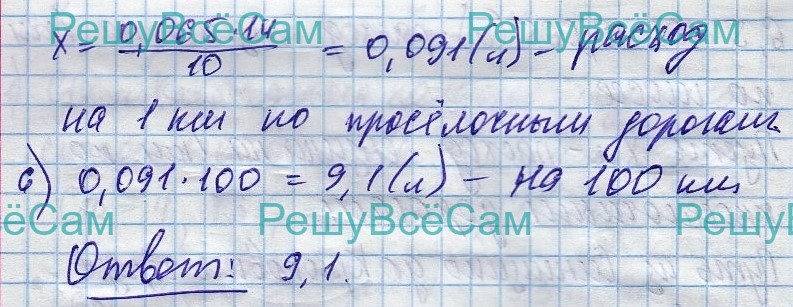 РешуВсёСам РешуВсёСам
x = 0,065·14 / 10 = 0,091 (л) – расход
на 1 км по просёлочным дорогам.
6) 0,091·100 = 9,1 (л) – на 100 км
ёСам РешуВсёСам РешуВсёСам
Ответ: 9,1.